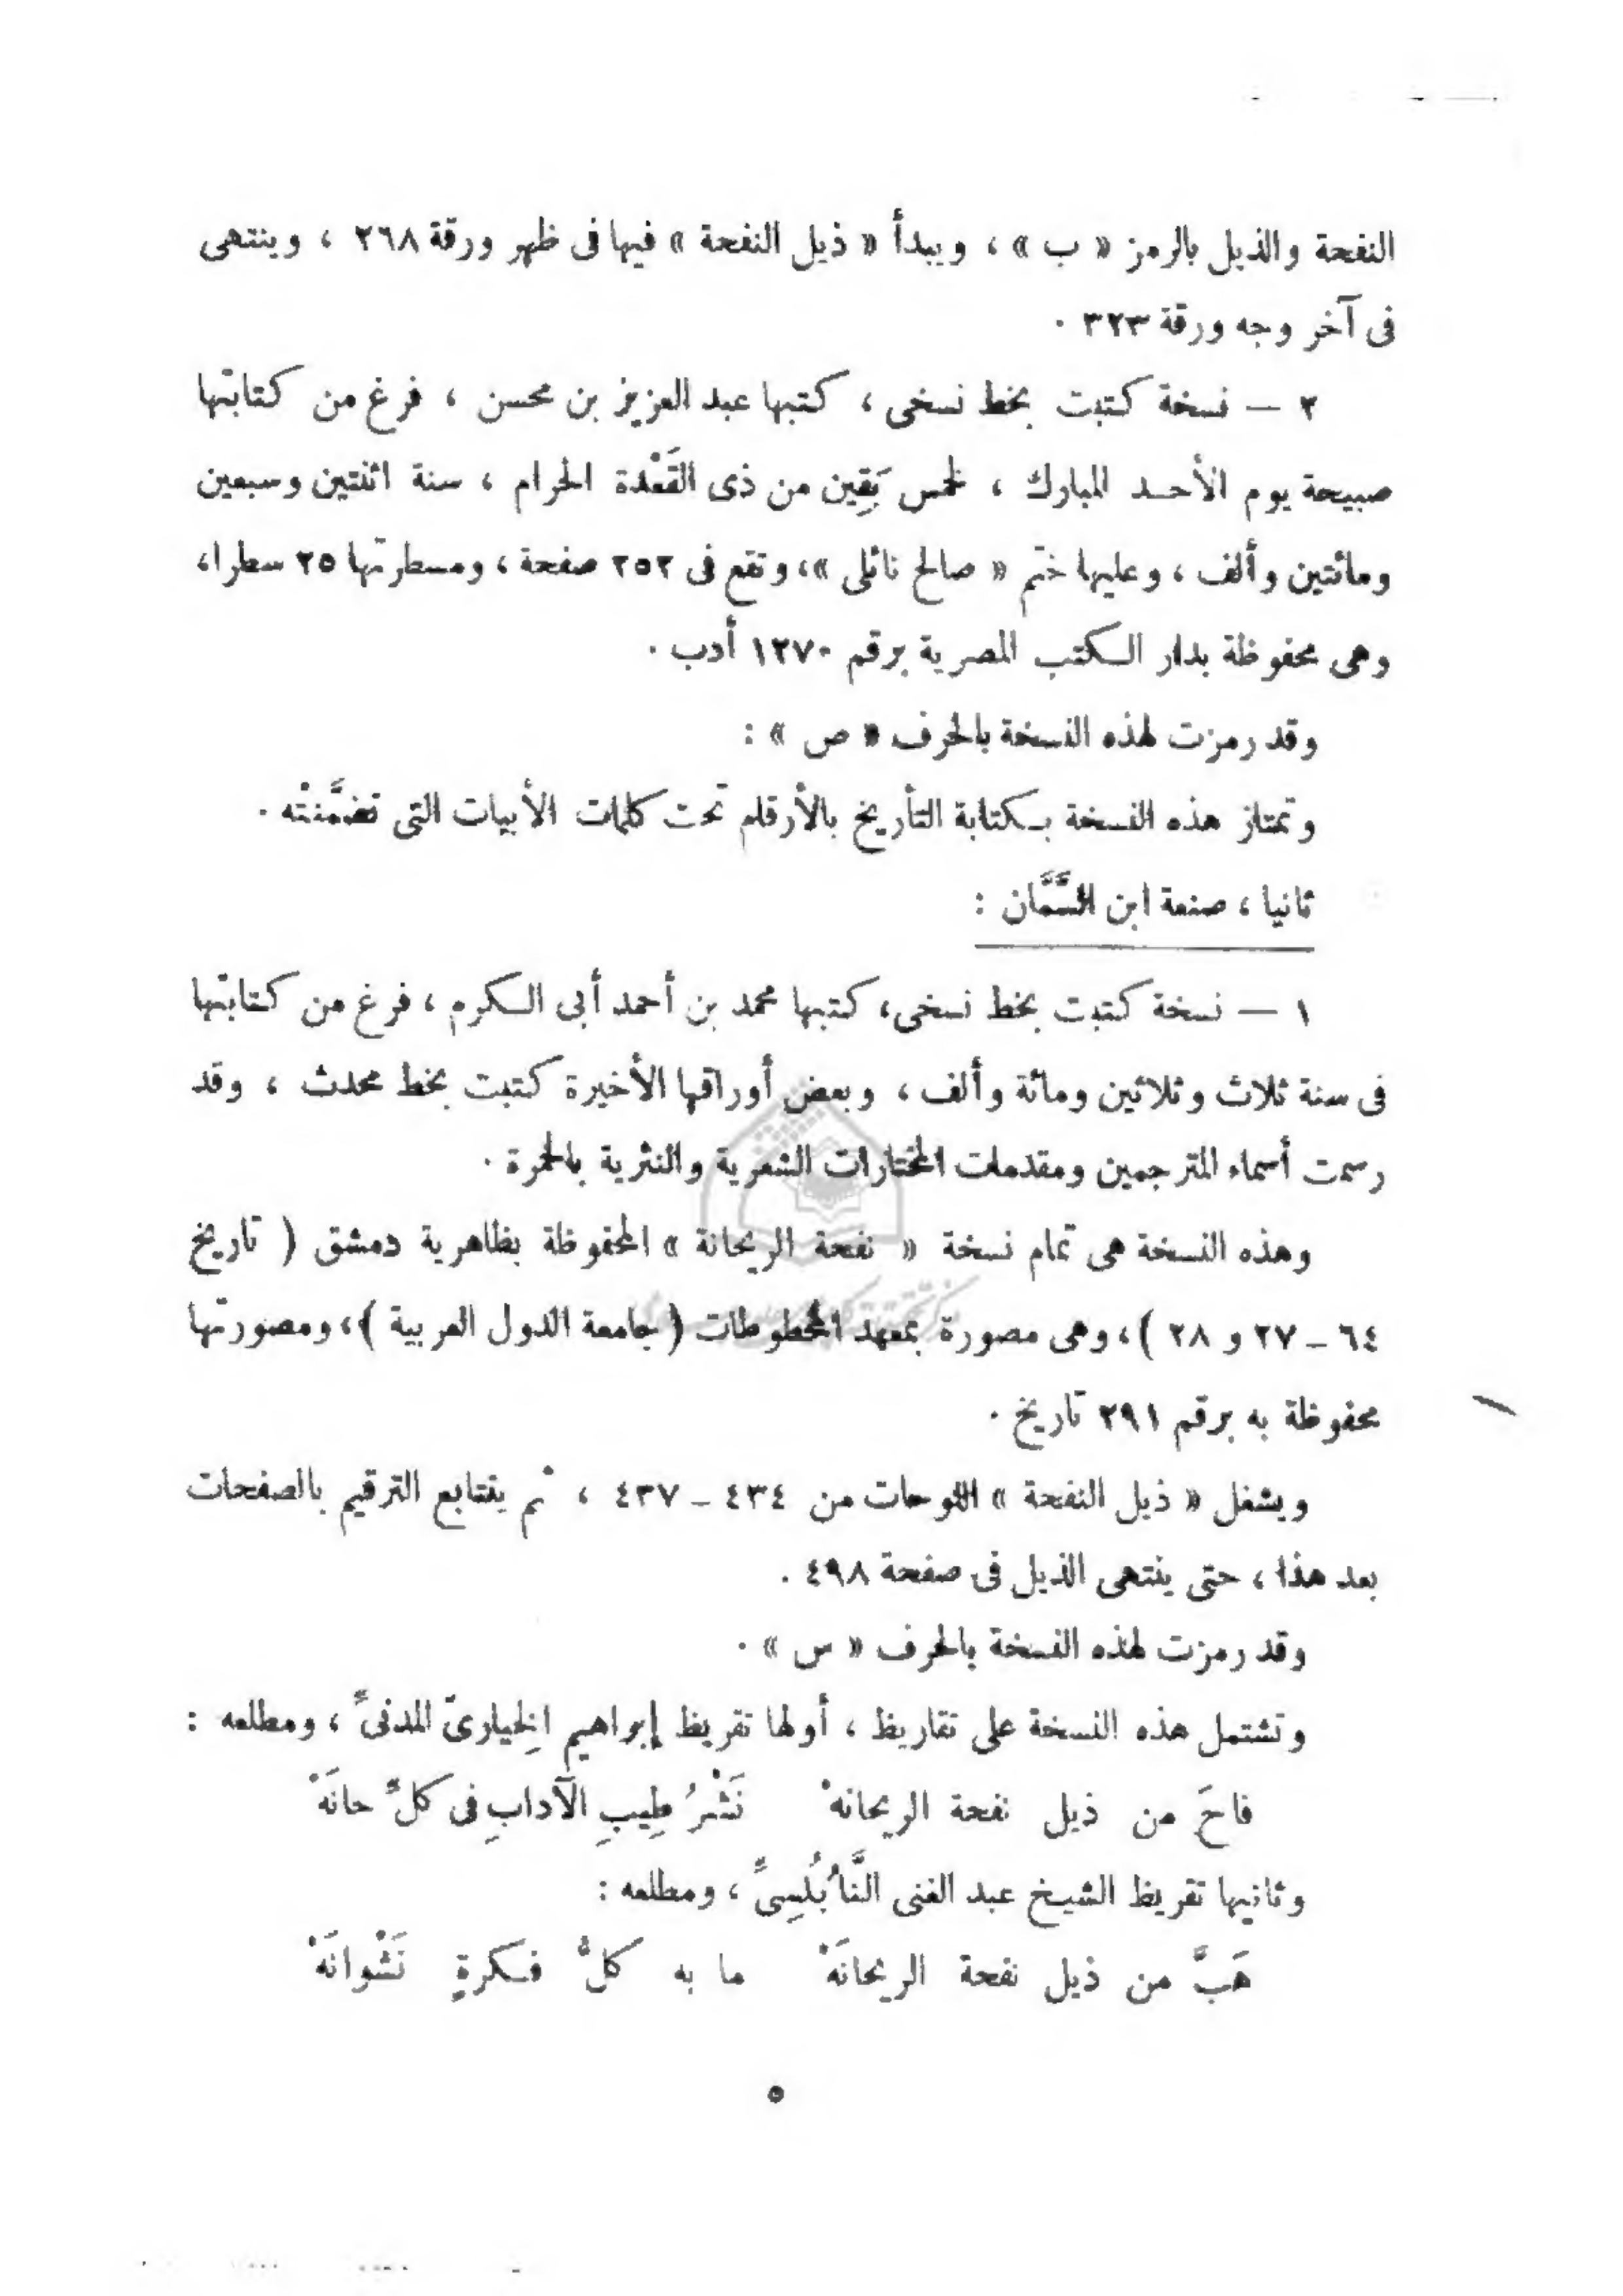 النفحة والذيل بالرمز « ب » ، ويبدأ « ذيل النفحة » فيها فى ظهر ورقة ٢٦٨ ، وينتهى
فى آخر وجه ورقة ٣٢٣ .
٢ — نسخة كتبت بخط نسخى ، كتبها عبد العزيز بن محسن ، فرغ من كتابتها
صبيحة يوم الأحد المبارك ، لخمس بَقِين من ذى القَعْدة الحرام ، سنة اثنتين وسبعين
ومائتين وألف ، وعليها ختم « صالح نائلى »، وتقع فى ٢٥٢ صفحة ، ومسطرتها ٢٥ سطرا،
وهى محفوظة بدار الكتب المصرية برقم ١٢٧٠ أدب .
وقد رمزت لهذه النسخة بالحرف « ص » :
وتمتاز هذه النسخة بكتابة التأريخ بالأرقام تحت كلمات الأبيات التى تضمَّنتْه .
ثانيا ، صنعة ابن السَّمَّان :
١ — نسخة كتبت بخط نسخى، كتبها محمد بن أحمد أبى الكرم ، فرغ من كتابتها
فى سنة ثلاث وثلاثين ومائة وألف ، وبعض أوراقها الأخيرة كتبت بخط محدث ، وقد
رسمت أسماء المترجمين ومقدمات المختارات الشعرية والنثرية بالحمرة .
وهذه النسخة هى تمام نسخة « نفحة الريحانة » المحفوظة بظاهرية دمشق ( تاريخ
٦٤ – ٢٧ و ٢٨ )، وهى مصورة بمعهد المخطوطات ( جامعة الدول العربية )، ومصورتها
محفوظة به برقم ٢٩١ تاريخ .
ويشغل « ذيل النفحة » اللوحات من ٤٣٤ – ٤٣٧ ، ثم يتتابع الترقيم بالصفحات
بعد هذا ، حتى ينتهى الذيل فى صفحة ٤٩٨ .
وقد رمزت لهذه النسخة بالحرف « س » .
وتشتمل هذه النسخة على تقاريظ ، أولها تقريظ إبراهيم الخِيارىّ المدنىّ ، ومطلعه :
فاحَ من ذيل نفحة الريحانهْ نَشْرُ طِيبِ الآدابِ فى كلِّ حانَهْ
وثانيها تقريظ الشيخ عبد الغنى النَّابُلسِىّ ، ومطلعه :
هَبَّ من ذيل نفحة الريحانَهْ ما به كلُّ فكرةٍ نَشْوانَهْ
٥